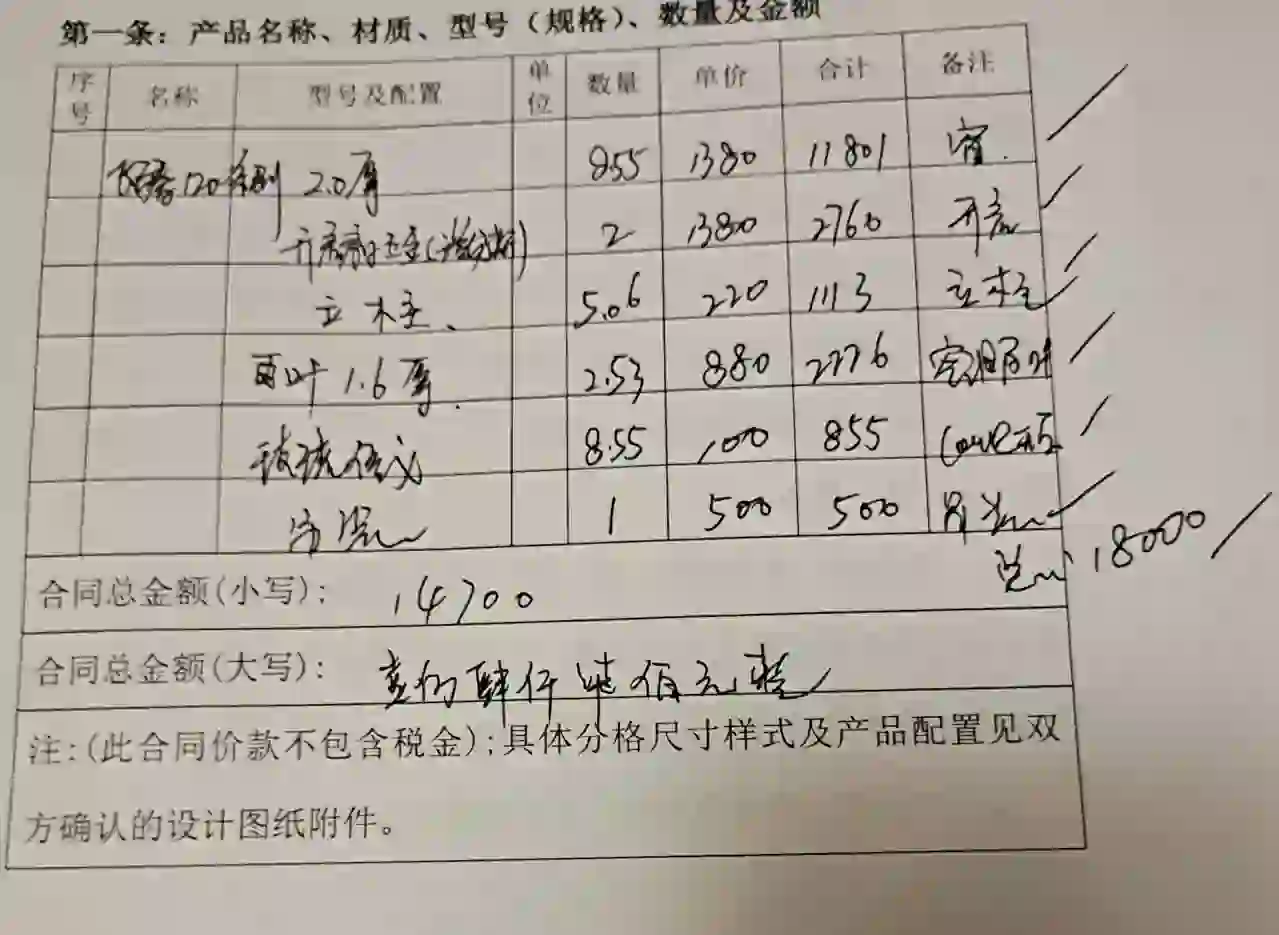 第一条：产品名称、材质、型号（规格）、数量及金额
序号 名称 型号及配置 单位 数量 单价 合计 备注
120系列 2.0厚 8.55 1380 11801 窗
2 1380 2760 开扇
立柱 5.06 220 1113 立柱
百叶 1.6厚 2.53 880 2776
玻璃 8.55 100 855
1 500 500
18000
合同总金额(小写)： 14700
合同总金额(大写)： 壹万肆仟柒佰元整
注:(此合同价款不包含税金);具体分格尺寸样式及产品配置见双
方确认的设计图纸附件。